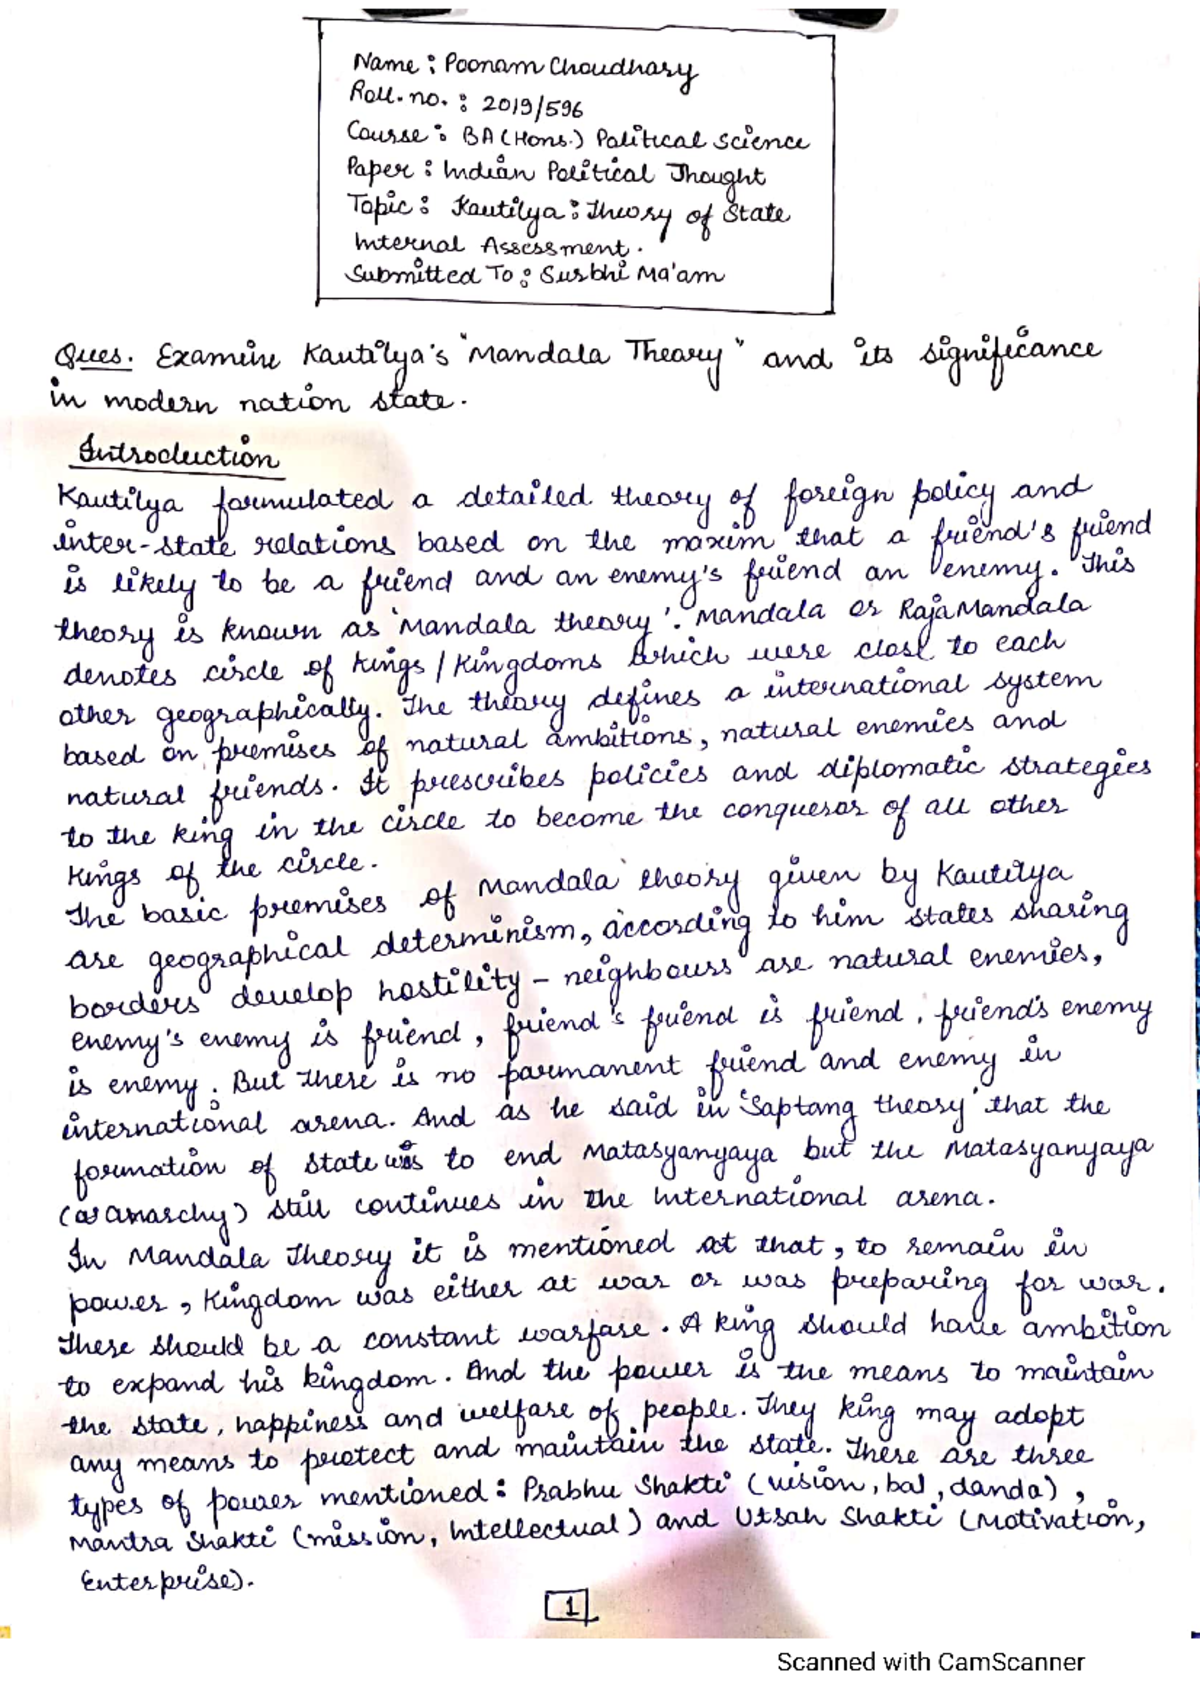 Name : Poonam Choudhary
Roll. no. : 2019/596
Course : BA (Hons.) Political Science
Paper : Indian Political Thought
Topic : Kautilya : Theory of State
Internal Assessment.
Submitted To : Surbhi Ma'am
Ques. Examine Kautilya's "Mandala Theory" and its significance
in modern nation state.
Introduction
Kautilya formulated a detailed theory of foreign policy and
inter-state relations based on the maxim that a friend's friend
is likely to be a friend and an enemy's friend an enemy. This
theory is known as 'Mandala theory'. Mandala or RajaMandala
denotes circle of kings / kingdoms which were close to each
other geographically. The theory defines a international system
based on premises of natural ambitions, natural enemies and
natural friends. It prescribes policies and diplomatic strategies
to the king in the circle to become the conqueror of all other
kings of the circle.
The basic premises of Mandala theory given by Kautilya
are geographical determinism, according to him states sharing
borders develop hostility - neighbours are natural enemies,
enemy's enemy is friend, friend's friend is friend, friend's enemy
is enemy. But there is no parmanent friend and enemy in
international arena. And as he said in 'Saptang theory' that the
formation of state was to end Matasyanyaya but the Matasyanyaya
(as anarchy) still continues in the International arena.
In Mandala Theory it is mentioned at that, to remain in
power, Kingdom was either at war or was preparing for war.
There should be a constant warfare. A king should have ambition
to expand his kingdom. And the power is the means to maintain
the state, happiness and welfare of people. They king may adopt
any means to protect and maintain the state. There are three
types of power mentioned : Prabhu Shakti (vision, bal, danda),
Mantra Shakti (mission, Intellectual) and Utsah Shakti (Motivation,
Enterprise).
1
Scanned with CamScanner